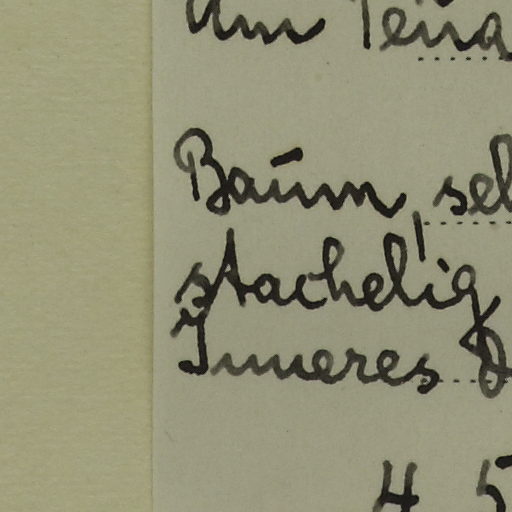 Am
Baum, seh
stachelig
Inneres
4 5